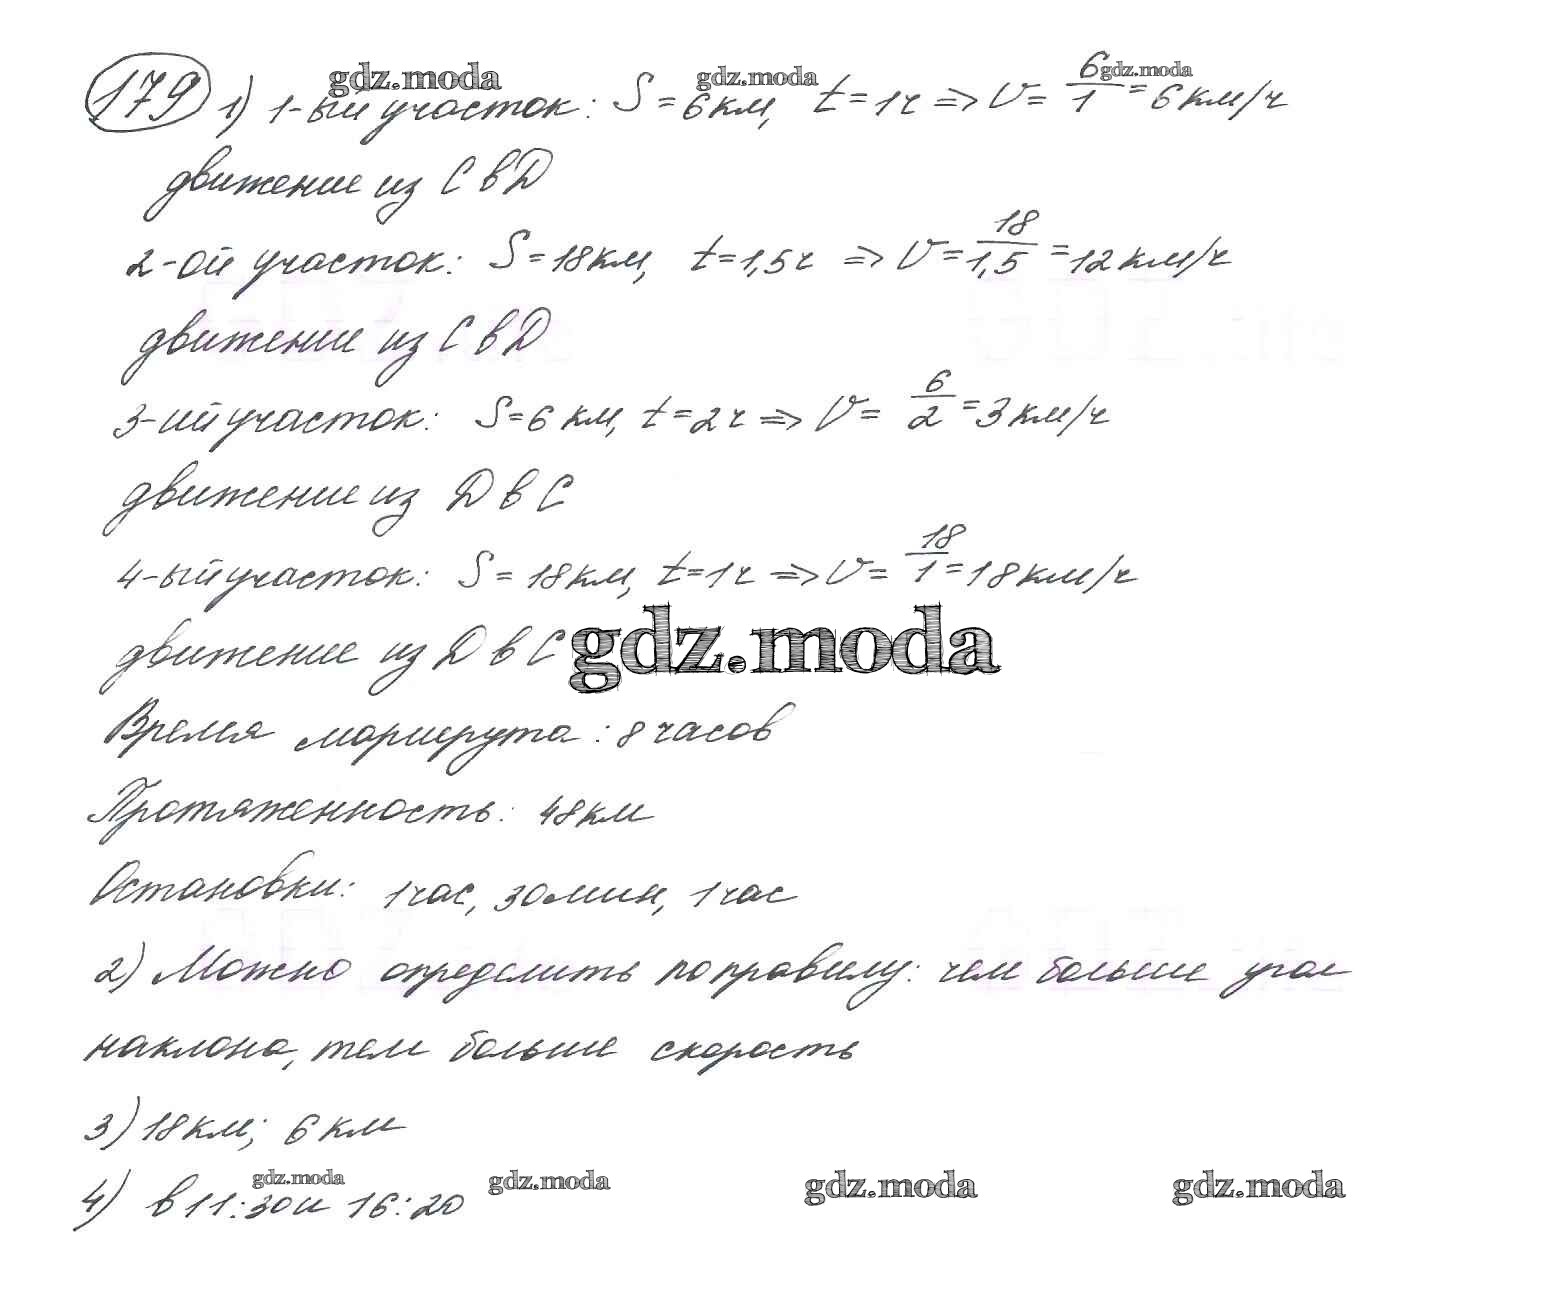 179 1) 1-ый участок: S = 6 км, t = 1 ч => V = 6/1 = 6 км/ч
движение из C в D
2-ой участок: S = 18 км, t = 1,5 ч => V = 18/1,5 = 12 км/ч
движение из C в D
3-ий участок: S = 6 км, t = 2 ч => V = 6/2 = 3 км/ч
движение из D в C
4-ый участок: S = 18 км, t = 1 ч => V = 18/1 = 18 км/ч
движение из D в C
Время маршрута: 8 часов
Протяженность: 48 км
Остановки: 1 час, 30 мин, 1 час
2) Можно определить по правилу: чем больше угол
наклона, тем больше скорость
3) 18 км; 6 км
4) в 11:30 и 16:20
gdz.moda
gdz.moda
gdz.moda
gdz.moda
gdz.moda
gdz.moda
gdz.moda
gdz.moda